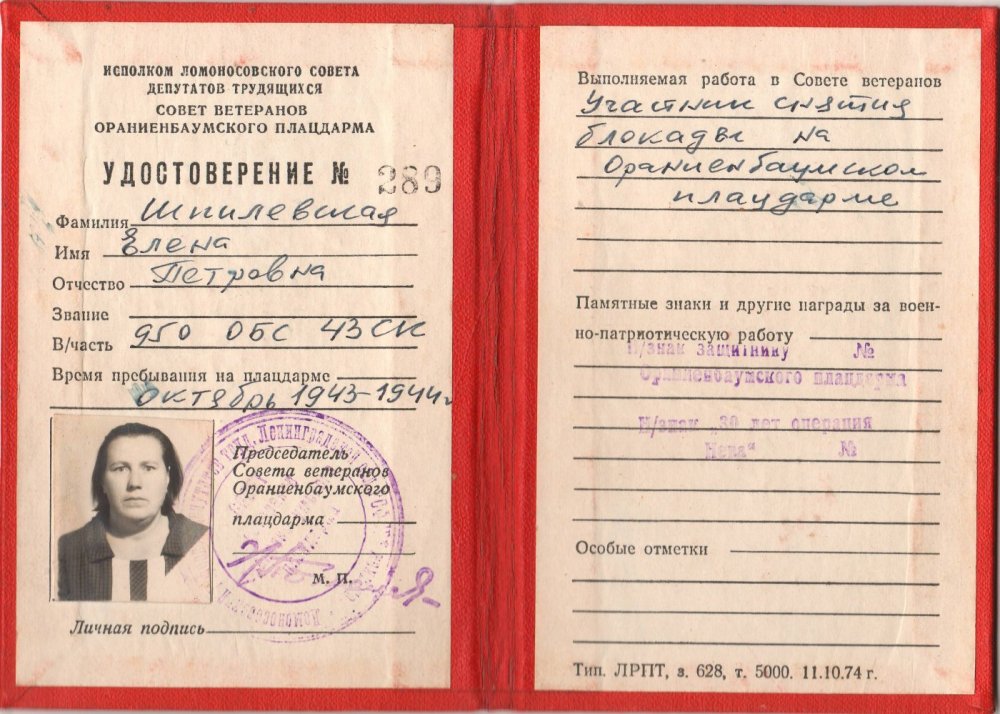 ИСПОЛКОМ ЛОМОНОСОВСКОГО СОВЕТА
ДЕПУТАТОВ ТРУДЯЩИХСЯ
СОВЕТ ВЕТЕРАНОВ
ОРАНИЕНБАУМСКОГО ПЛАЦДАРМА
УДОСТОВЕРЕНИЕ № 289
Фамилия Шпилевская
Имя Елена
Отчество Петровна
Звание
В/часть 950 ОБС 43 СК
Время пребывания на плацдарме
октябрь 1943-1944 г
Председатель
Совета ветеранов
Ораниенбаумского
плацдарма
М. П.
Личная подпись
Выполняемая работа в Совете ветеранов
Участник снятия
блокады на
Ораниенбаумском
плацдарме
Памятные знаки и другие награды за воен-
но-патриотическую работу
Н/знак защитнику №
Ораниенбаумского плацдарма
Н/знак „30 лет операция
Нева“ №
Особые отметки
Тип. ЛРПТ, з. 628, т. 5000. 11.10.74 г.